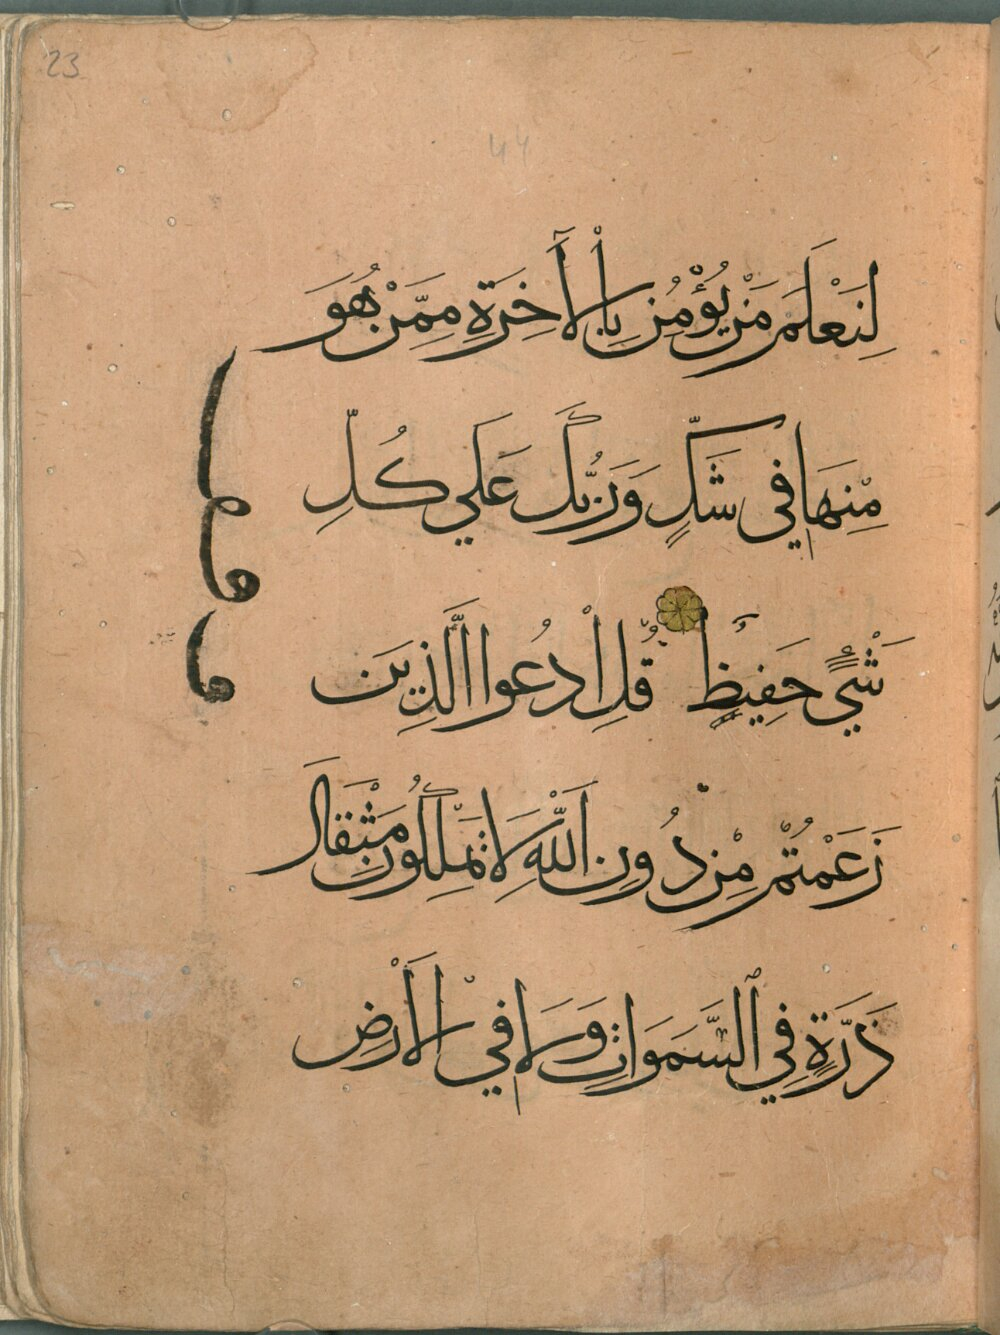 23
44
لِنَعْلَمَ مَنْ يُؤْمِنُ بِالْأَخِرَةِ مِمَّنْ هُوَ
مِنْهَا فِي شَكٍّ وَرَبُّكَ عَلَي كُلِّ
شَيْءٍ حَفِيظٌ قُلِ ادْعُوا الَّذِينَ
زَعَمْتُمْ مِنْ دُونِ اللَّهِ لَا يَمْلِكُونَ مِثْقَالَ
ذَرَّةٍ فِي السَّمَوَاتِ وَلَا فِي الْأَرْضِ